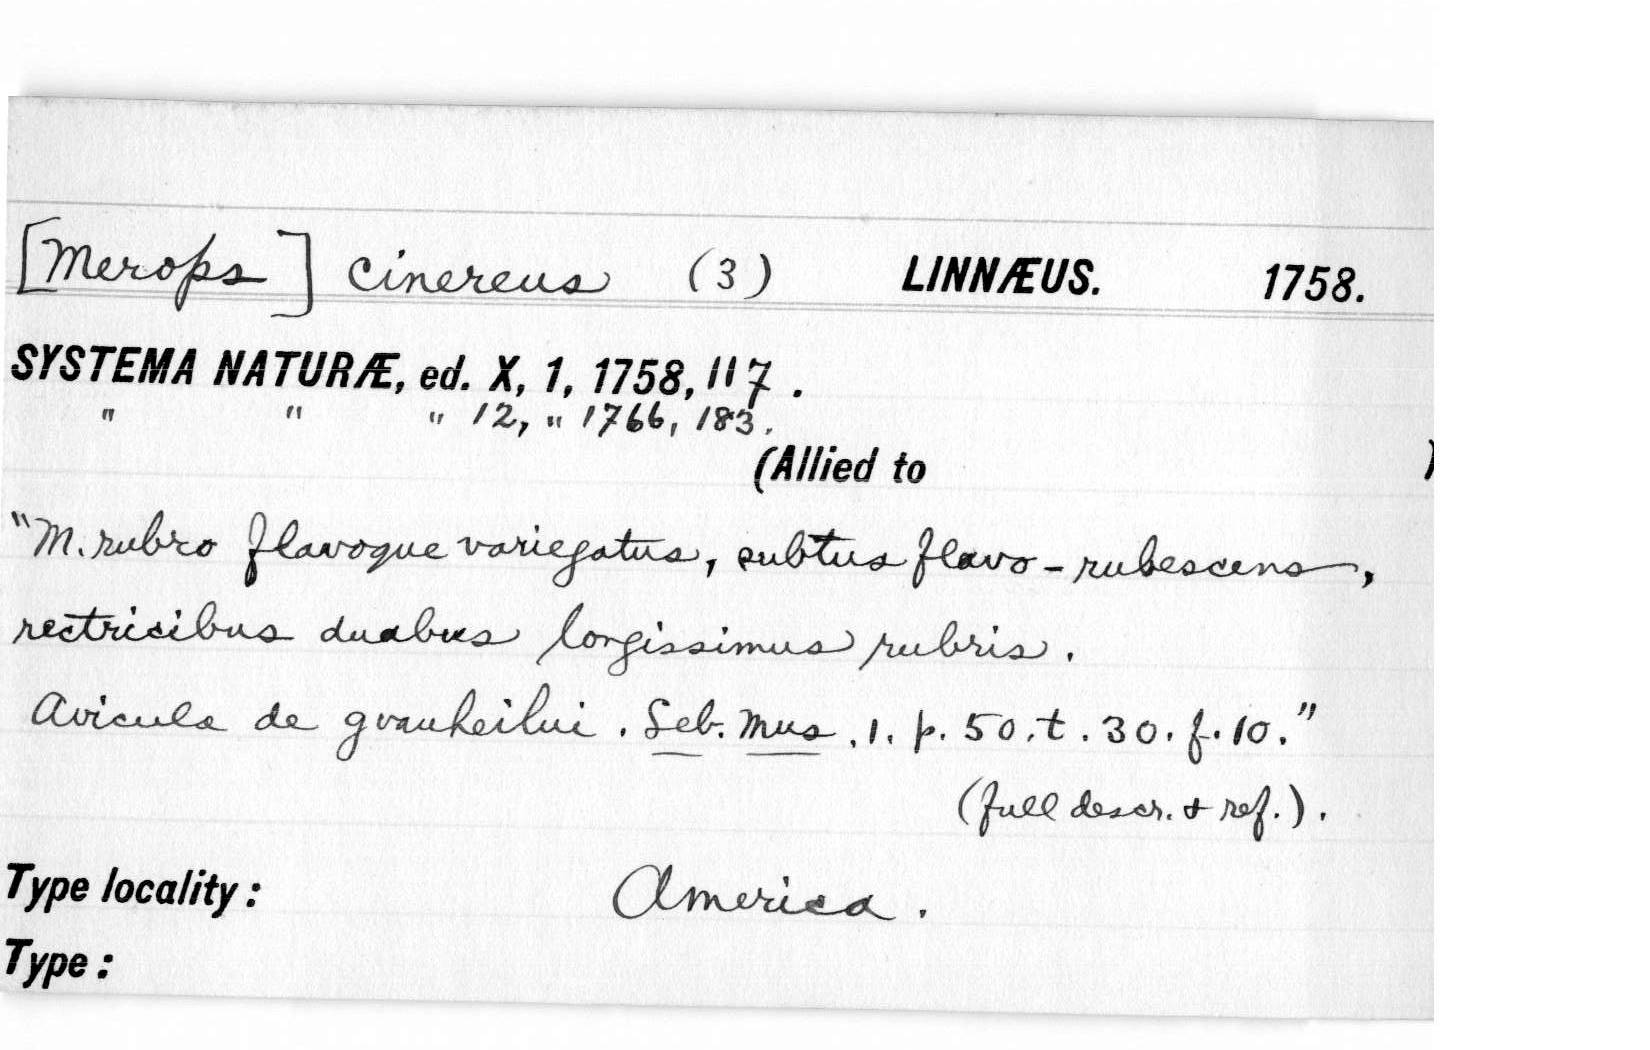 [Merops] cinereus (3) LINNÆUS. 1758.
SYSTEMA NATURÆ, ed. X, 1, 1758, 117.
" " " 12, " 1766, 183.
(Allied to )
"M. rubro flavoque variegatus, subtus flavo-rubescens,
rectricibus duabus longissimus rubris.
Avicula de gvauheilui. Seb. Mus. 1. p. 50. t. 30. f. 10."
(full descr. & ref.).
Type locality: America.
Type: